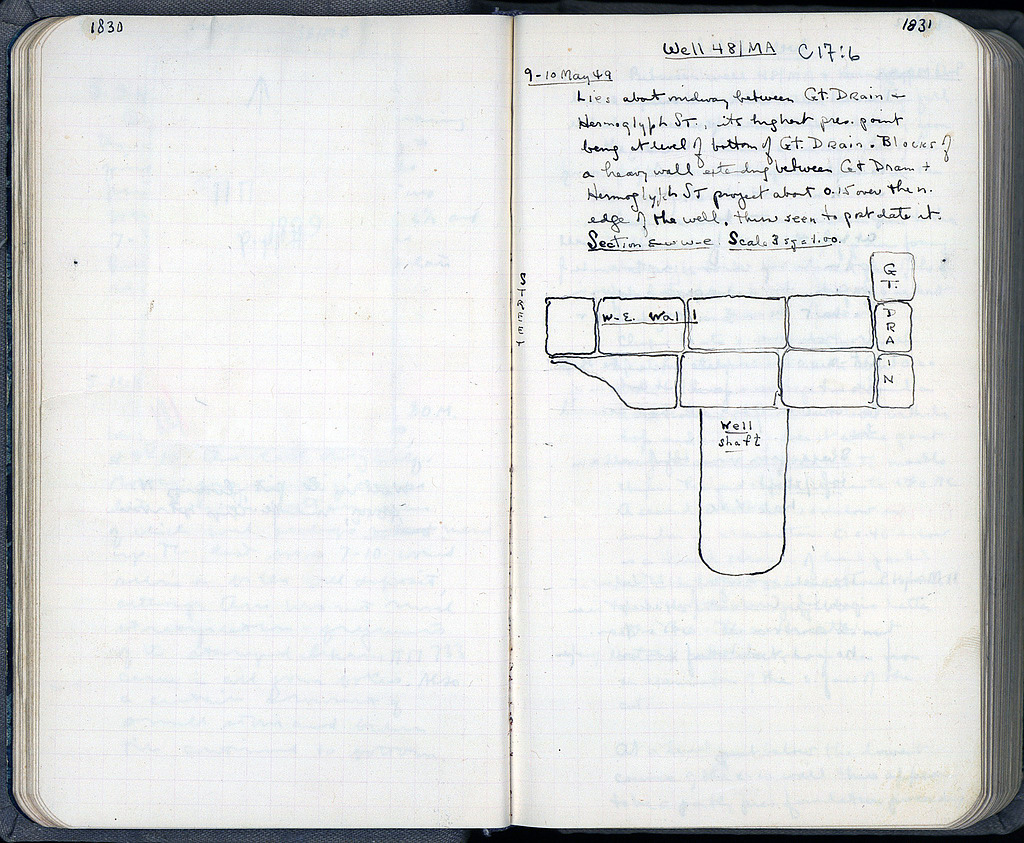 1830
1831
Well 48/MA C17:6
9-10 May 49
Lies about midway between Gt. Drain +
Hermoglyph ST., its highest pres. point
being at level of bottom of Gt. Drain. Blocks of
a heavy wall extending between Gt Drain +
Hermoglyph ST project about 0.15 over the n.
edge of the well, thus seen to postdate it.
Section W-E Scale 3 sq = 1.00.
STREET
W-E. Wall
GT. DRAIN
Well
shaft